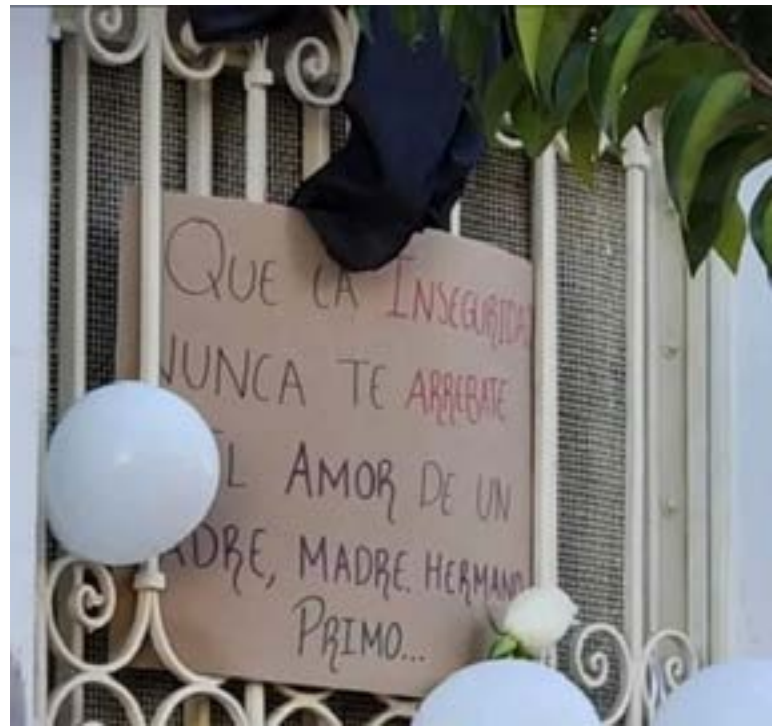 QUE LA INSEGURIDAD
NUNCA TE ARREBATE
EL AMOR DE UN
PADRE, MADRE. HERMANO
PRIMO...